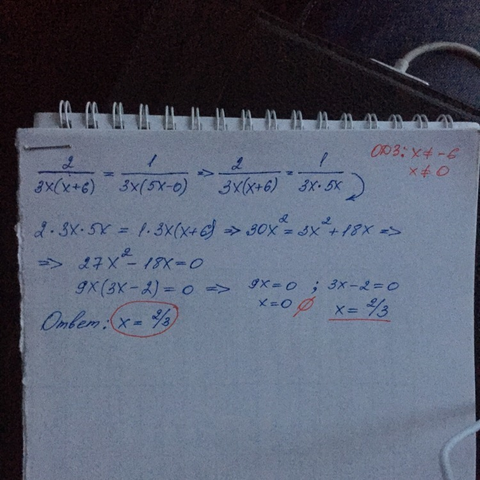 2/(3x(x+6)) = 1/(3x(5x-0)) => 2/(3x(x+6)) = 1/(3x·5x)
ОДЗ: x≠-6
x≠0
2·3x·5x = 1·3x(x+6) => 30x² = 3x² + 18x =>
=> 27x² - 18x = 0
9x(3x-2) = 0 => 9x=0 ; 3x-2=0
x=0 ∅ x= 2/3
Ответ: x= 2/3